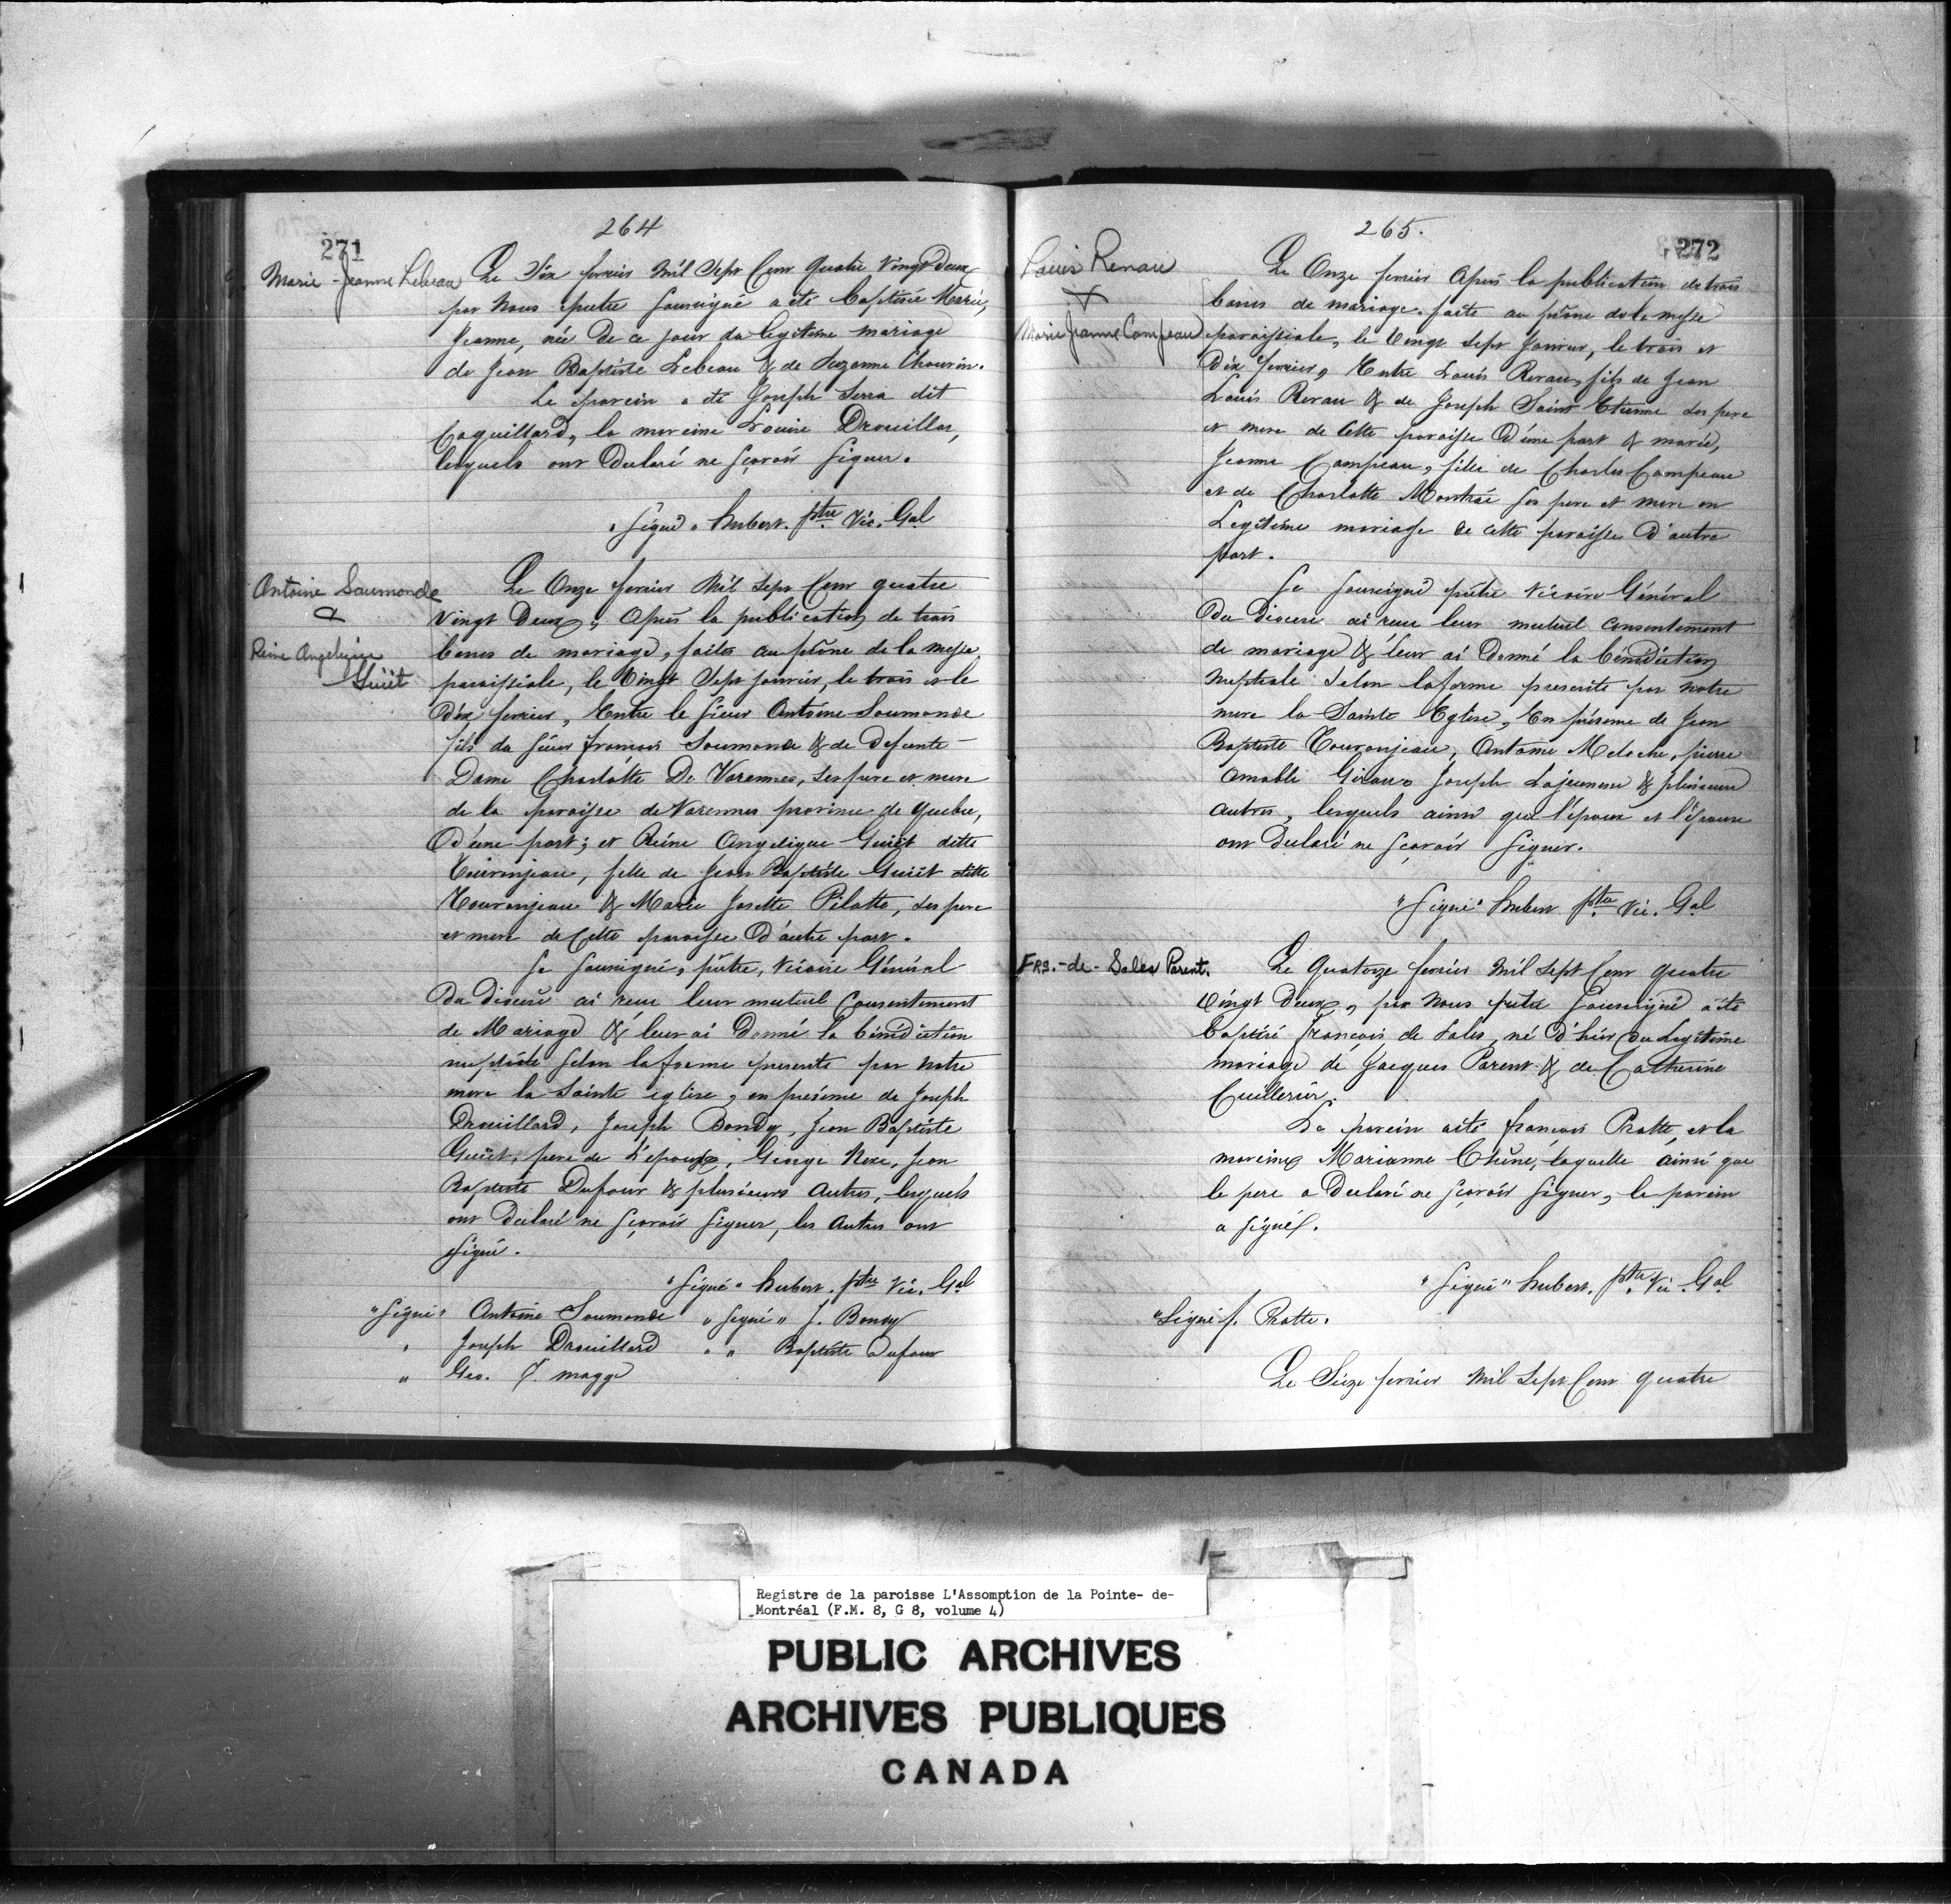 264
271
Marie-Jeanne Lebeau
Le Six fevrier Mil Sept Cent Quatre Vingt Deux
par Nous prêtre soussigné a été Baptisée Marie,
Jeanne, née De ce jour du legitime mariage
de Jean Baptiste Lebeau & de Suzanne Chauvin.
Le parein a été Joseph Serra dit
Coquillard, la mareine Louise Drouillar,
lesquels ont Declaré ne sçavoir signer.
"signé" Hubert. ptre Vic. Gal
Antoine Saumonde
&
Reine Angelique
Guiët
Le Onze fevrier Mil Sept Cent quatre
Vingt Deux, Après la publication de trois
bancs de mariage, faites au prône de la messe
paroissiale, le Vingt Sept janvier, le trois et le
Dix fevrier, Entre le sieur Antoine Soumonde
fils du sieur françois Soumonde & de Defunte
Dame Charlotte De Varennes, ses pere et mere
de la paroisse de Varennes province de Quebec,
D'une part; et Reine Angelique Guiët ditte
Touronjeau, fille de Jean Baptiste Guiët ditte
Touronjeau & Marie Josette Pilotte, ses pere
et mere de Cette paroisse D'autre part.
Je soussigné, prêtre, Vicaire Général
Du diocese ai reçu leur mutuel Consentement
de Mariage & leur ai Donné la bénédiction
nuptiale selon la forme prescrite par notre
mere la Sainte église, en présence de Joseph
Drouillard, Joseph Bondy, Jean Baptiste
Guiët, pere de L'epouse, George Meke, Jean
Baptiste Dufour & plusieurs Autres, lesquels
ont Declaré ne sçavoir signer, les Autres ont
signé.
"signé" Hubert. ptre Vic. Gal
"signé" Antoine Soumonde "signé" J. Bondy
" Joseph Drouillard " " Baptiste Dufour
" Geo. magge
265.
272
Louis Renau
+
Marie Jeanne Campeau
Le Onze fevrier Après la publication de trois
bancs de mariage faite au prône de la messe
paroissiale, le Vingt Sept Janvier, le trois et
Dix fevrier, Entre Louis Renau, fils de Jean
Louis Renau & de Joseph Saint Etienne ses pere
et mere de Cette paroisse D'une part & marie,
Jeanne Campeau, fille de Charles Campeau
et de Charlotte Montrai ses pere et mere en
Legitime mariage de cette paroisse D'autre
part.
Je soussigné prêtre Vicaire Général
Du diocese ai reçu leur mutuel Consentement
de mariage & leur ai Donné la bénédiction
Nuptiale selon la forme prescrite par notre
mere la Sainte Eglise, En présence de Jean
Baptiste Touronjeau, Antoine Meloche, pierre
Amable Girau, Joseph Lajeunesse & plusieurs
autres, lesquels ainsi que l'époux et l'épouse
ont Declaré ne sçavoir signer.
"signé" Hubert ptre Vic. Gal
FRS.-de-Sales Parent.
Le Quatorze fevrier Mil Sept Cent Quatre
Vingt Deux, par Nous prêtre soussigné a été
baptisé françois de Sales, né D'hier du Legitime
mariage de Jacques Parent & de Catherine
Cuillerier.
Le parein a été françois Pratte, et la
mareine Marianne Chêne, laquelle ainsi que
le pere a Declaré ne sçavoir signer, le parein
a signé.
"signé" Hubert. ptre Vic. Gal
"signé f. Pratte.
Le Seize fevrier Mil Sept Cent quatre
Registre de la paroisse L'Assomption de la Pointe- de-
Montréal (F.M. 8, G 8, volume 4)
PUBLIC ARCHIVES
ARCHIVES PUBLIQUES
CANADA